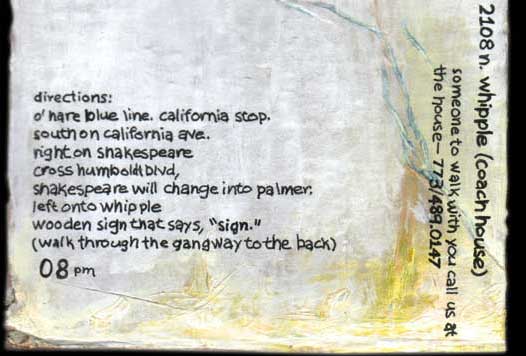 directions:
o'hare blue line. california stop.
south on california ave.
right on shakespeare
cross humboldt blvd,
shakespeare will change into palmer.
left onto whipple
wooden sign that says, "sign."
(walk through the gangway to the back)
08 pm
2108 n. whipple (coach house)
someone to walk with you call us at
the house— 773/489.0147